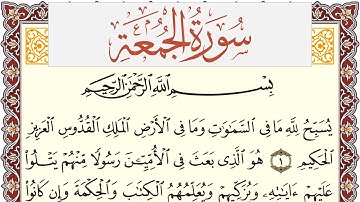 سُورَةُ الجُمُعَةِ
بِسْمِ ٱللَّهِ ٱلرَّحْمَٰنِ ٱلرَّحِيمِ
يُسَبِّحُ لِلَّهِ مَا فِى ٱلسَّمَٰوَٰتِ وَمَا فِى ٱلْأَرْضِ ٱلْمَلِكِ ٱلْقُدُّوسِ ٱلْعَزِيزِ
ٱلْحَكِيمِ ١ هُوَ ٱلَّذِى بَعَثَ فِى ٱلْأُمِّيِّـۧنَ رَسُولًا مِّنْهُمْ يَتْلُوا۟
عَلَيْهِمْ ءَايَٰتِهِۦ وَيُزَكِّيهِمْ وَيُعَلِّمُهُمُ ٱلْكِتَٰبَ وَٱلْحِكْمَةَ وَإِن كَانُوا۟